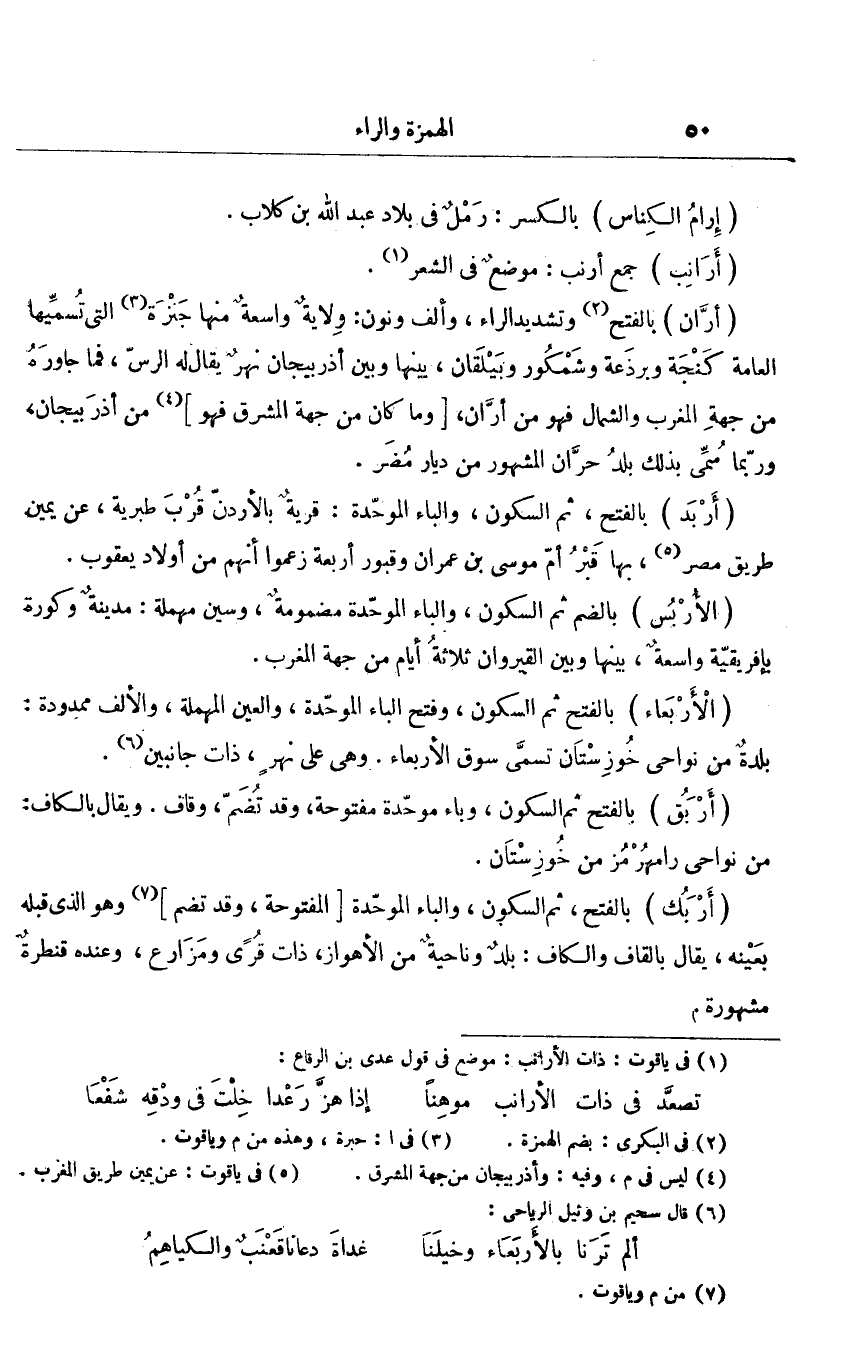 ٥٠ الهمزة والراء
( إِرامُ الكِناس ) بالكسر : رَمْلٌ فى بلاد عبد الله بن كلاب .
( أَرَانِب ) جمع أرنب : موضعٌ فى الشعر(١) .
( أرَّان ) بالفتح(٢) وتشديد الراء ، وألف ونون: وِلايةٌ واسعةٌ منها جَنْزَة(٣) التى تُسمِّيها
العامة كَنْجَة وبرذَعة وشَمْكُور وبَيْلَقان ، بينها وبين أذربيجان نهرٌ يقال له الرسّ ، فما جاورَهُ
من جهةِ المغرب والشمال فهو من أرَّان، [ وما كان من جهة المشرق فهو ](٤) من أذرَبيجان،
وربّما سُمِّى بذلك بلدُ حرَّان المشهور من ديار مُضَر .
( أَرْبَد ) بالفتح ، ثم السكون ، والباء الموحّدة : قريةٌ بالأردنّ قُرْبَ طبرية ، عن يمين
طريق مصر(٥) ، بها قَبْرُ أمّ موسى بن عمران وقبور أربعة زعموا أنهم من أولاد يعقوب .
( الأُرْبُس ) بالضم ثم السكون ، والباء الموحّدة مضمومةٌ ، وسين مهملة : مدينةٌ وكورة
بإفريقيّة واسعةٌ ، بينها وبين القيروان ثلاثةُ أيام من جهة المغرب .
( الْأَرْبَعاء ) بالفتح ثم السكون ، وفتح الباء الموحّدة ، والعين المهملة ، والألف ممدودة :
بلدةٌ من نواحى خُوزِسْتَان تسمَّى سوق الأربعاء . وهى على نهرٍ ، ذات جانبين(٦) .
( أَرْبَُق ) بالفتح ثم السكون ، وباء موحّدة مفتوحة، وقد تُضَمّ، وقاف . ويقال بالكاف:
من نواحى رامهُرْمُز من خُوزِسْتَان .
( أَرْبُك ) بالفتح ، ثم السكون ، والباء الموحّدة [ المفتوحة ، وقد تضم ](٧) وهو الذى قبله
بعَيْنه ، يقال بالقاف والكاف : بلدٌ وناحيةٌ من الأهواز، ذات قُرًى ومَزَارع ، وعنده قنطرةٌ
مشهورة م
(١) فى ياقوت : ذات الأرانب : موضع فى قول عدى بن الرقاع :
تصعَّد فى ذات الأرانب موهِنًا إذا هزَّ رَعْدا خِلْتَ فى ودْقِه شَفْعَا
(٢) فى البكرى : بضم الهمزة . (٣) فى ا : حبرة ، وهذه من م وياقوت .
(٤) ليس فى م ، وفيه : وأذربيجان من جهة المشرق . (٥) فى ياقوت : عن يمين طريق المغرب .
(٦) قال سحيم بن وثيل الرياحى :
ألم تَرَنا بالأَربَعَاء وخيلَنَا غداةَ دعانا قَعْنَبٌ والكياهِمُ
(٧) من م وياقوت .